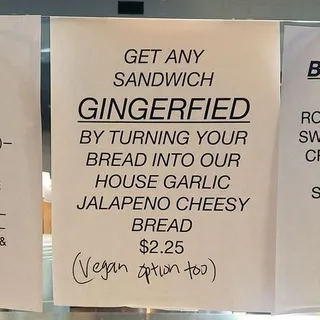 GET ANY
SANDWICH
GINGERFIED
BY TURNING YOUR
BREAD INTO OUR
HOUSE GARLIC
JALAPENO CHEESY
BREAD
$2.25
(Vegan option too)
&
B
RO
SW
CR
S